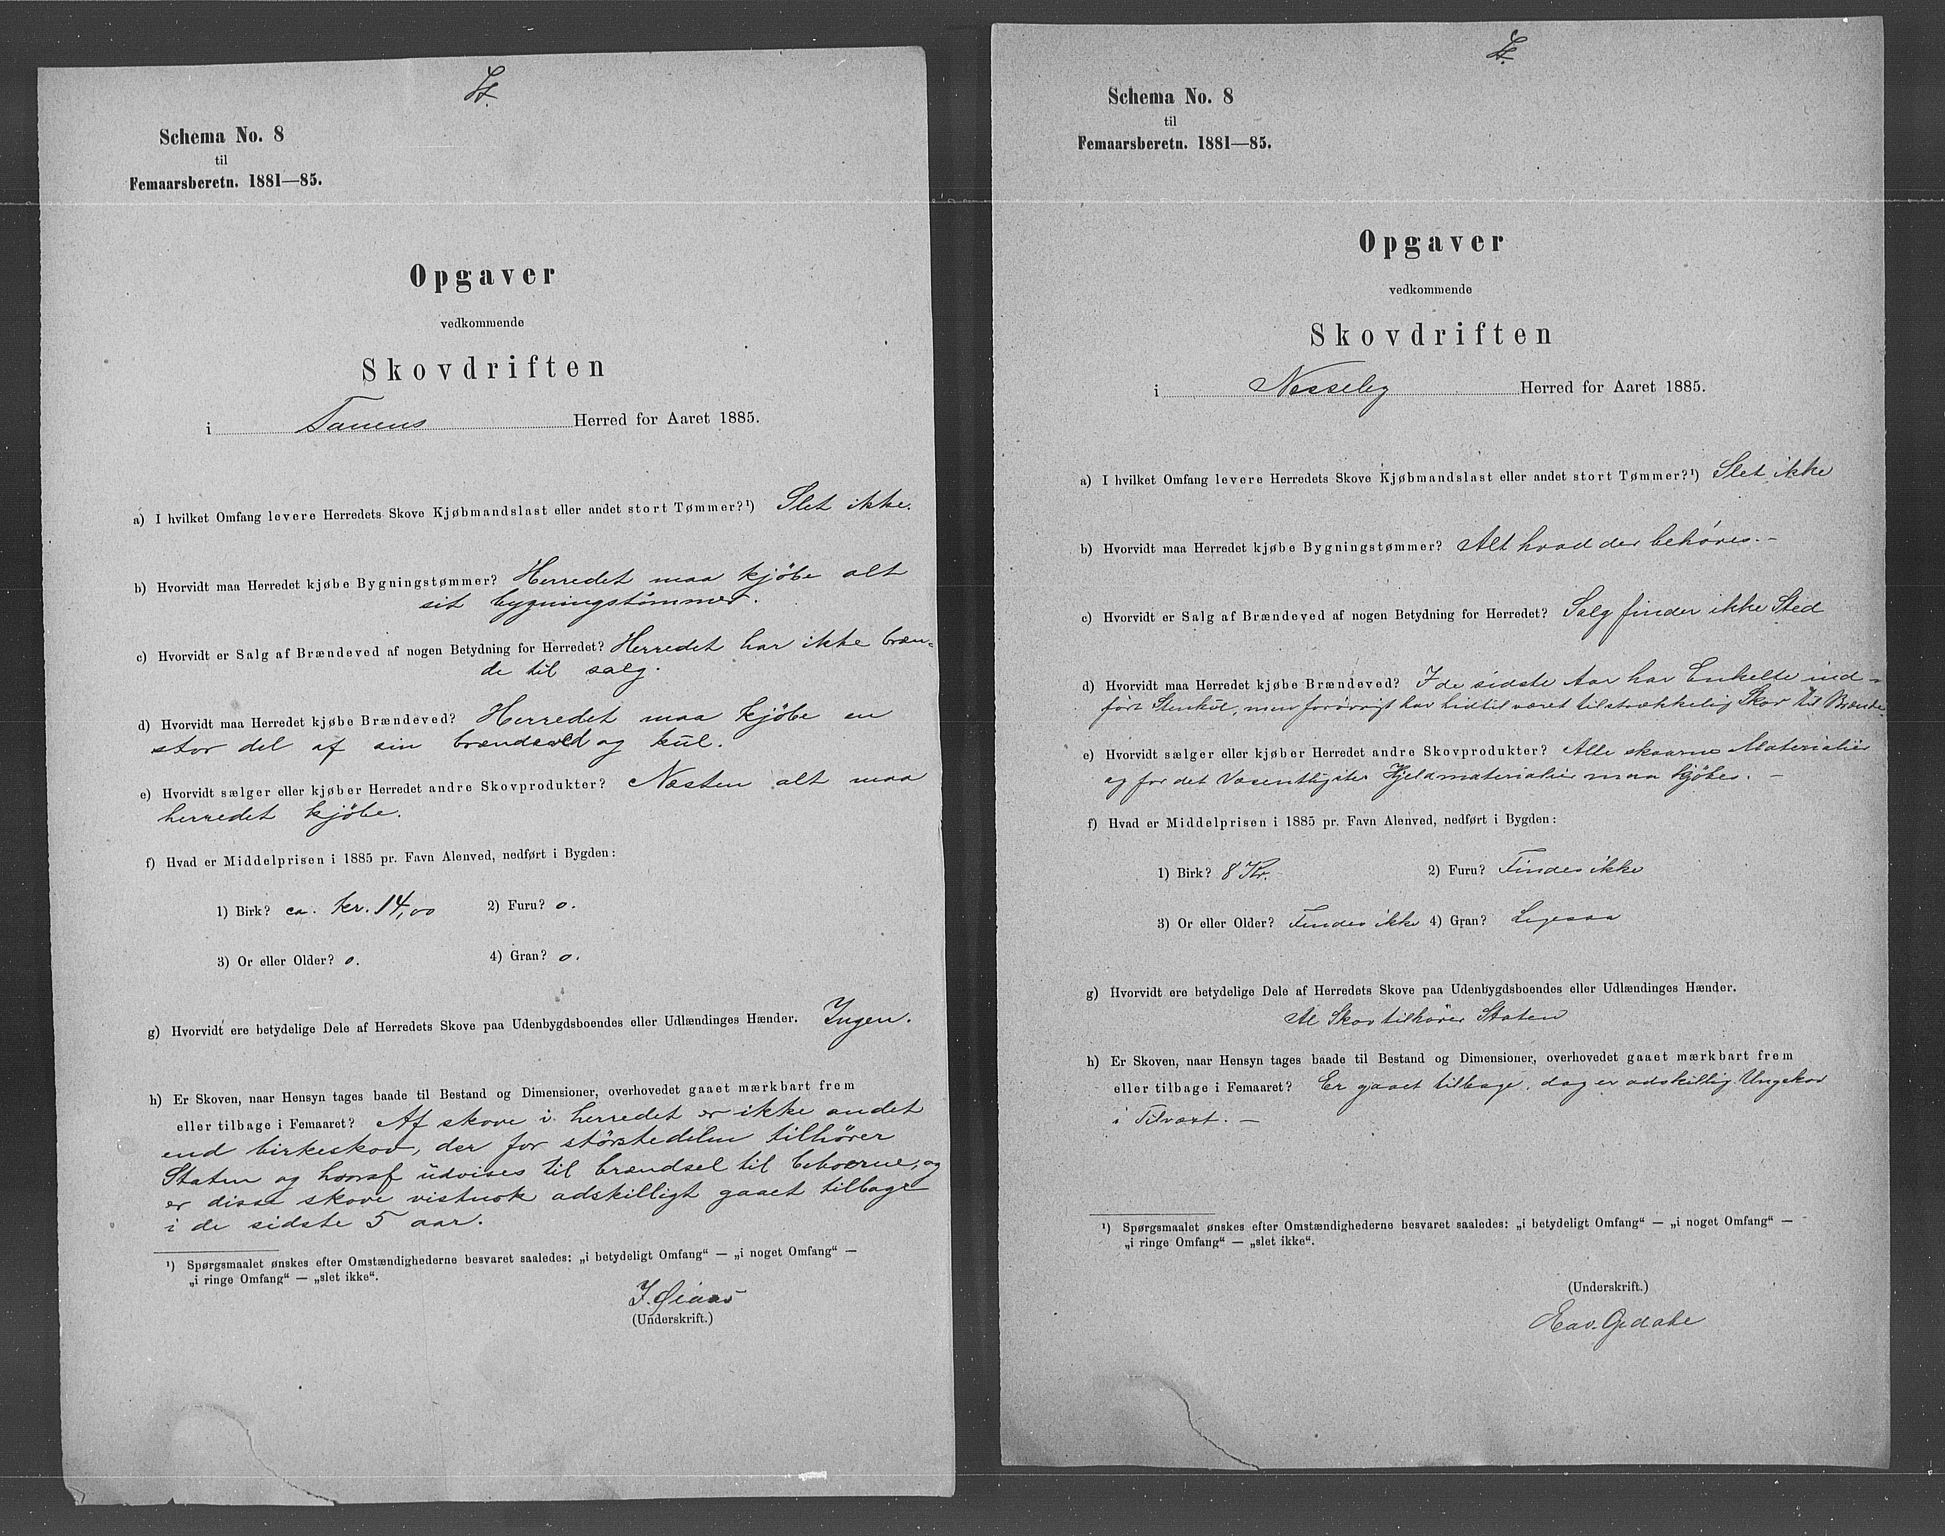 Schema No. 8
til
Femaarsberetn. 1881—85.
Opgaver
vedkommende
Skovdriften
i Tanens Herred for Aaret 1885.
a) I hvilket Omfang levere Herredets Skove Kjøbmandslast eller andet stort Tømmer?¹) Slet ikke.
b) Hvorvidt maa Herredet kjøbe Bygningstømmer? Herredet maa kjöbe alt
sit bygningstömmer.
c) Hvorvidt er Salg af Brændeved af nogen Betydning for Herredet? Herredet har ikke bræn-
de til salg.
d) Hvorvidt maa Herredet kjøbe Brændeved? Herredet maa kjöbe en
stor del af sin brændeved og kul.
e) Hvorvidt sælger eller kjøber Herredet andre Skovprodukter? Næsten alt maa
herredet kjöbe.
f) Hvad er Middelprisen i 1885 pr. Favn Alenved, nedført i Bygden:
1) Birk? ca. kr. 14,00 2) Furu? o.
3) Or eller Older? o. 4) Gran? o.
g) Hvorvidt ere betydelige Dele af Herredets Skove paa Udenbygdsboendes eller Udlændinges Hænder. Ingen.
h) Er Skoven, naar Hensyn tages baade til Bestand og Dimensioner, overhovedet gaaet mærkbart frem
eller tilbage i Femaaret? Af skove i herredet er ikke andet
end birkeskov, der for störstedelen tilhörer
Staten og hvoraf udvises til brændsel til beboerne, og
er disse skove vistnok adskilligt gaaet tilbage
i de sidste 5 aar.
¹) Spørgsmaalet ønskes efter Omstændighederne besvaret saaledes: „i betydeligt Omfang“ — „i noget Omfang“ —
„i ringe Omfang“ — „slet ikke“.
(Underskrift.)
Schema No. 8
til
Femaarsberetn. 1881—85.
Opgaver
vedkommende
Skovdriften
i Nesseby Herred for Aaret 1885.
a) I hvilket Omfang levere Herredets Skove Kjøbmandslast eller andet stort Tømmer?¹) Slet ikke
b) Hvorvidt maa Herredet kjøbe Bygningstømmer? Alt hvad der behöves.-
c) Hvorvidt er Salg af Brændeved af nogen Betydning for Herredet? Salg finder ikke Sted
d) Hvorvidt maa Herredet kjøbe Brændeved? I de sidste Aar har Enkelte ind-
fört Stenkul, men forövrigt har hidtil været tilstrækkelig Skov til Brænde
e) Hvorvidt sælger eller kjøber Herredet andre Skovprodukter? Alle skaarne Materialier
og for det Væsentligste Hjeldmaterialier maa kjöbes. -
f) Hvad er Middelprisen i 1885 pr. Favn Alenved, nedført i Bygden:
1) Birk? 8 Kr. 2) Furu? Findes ikke
3) Or eller Older? Findes ikke 4) Gran? Ligesaa
g) Hvorvidt ere betydelige Dele af Herredets Skove paa Udenbygdsboendes eller Udlændinges Hænder.
Al Skov tilhörer Staten
h) Er Skoven, naar Hensyn tages baade til Bestand og Dimensioner, overhovedet gaaet mærkbart frem
eller tilbage i Femaaret? Er gaaet tilbage, dog er adskillig Ungskov
i Tilvæxt. -
¹) Spørgsmaalet ønskes efter Omstændighederne besvaret saaledes: „i betydeligt Omfang“ — „i noget Omfang“ —
„i ringe Omfang“ — „slet ikke“.
(Underskrift.)